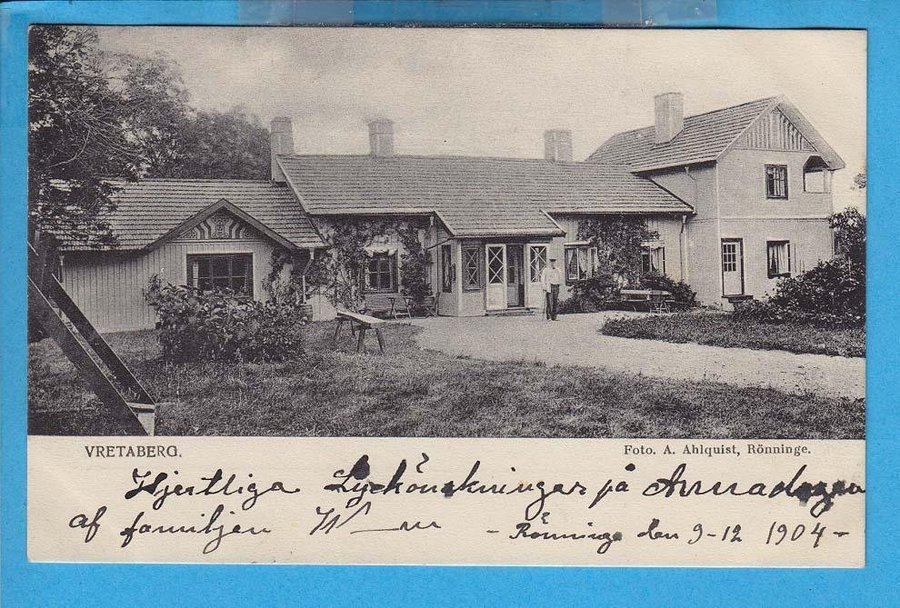 VRETABERG.
Foto. A. Ahlquist, Rönninge.
Hjertliga Lyckönskningar på Annadagen
af familjen W
- Rönninge den 9-12 1904-